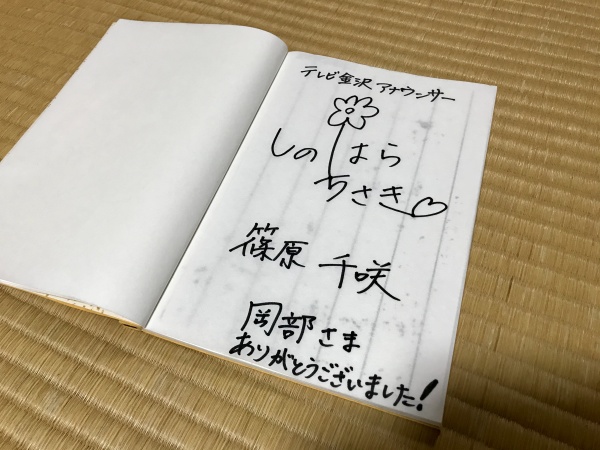 テレビ金沢 アナウンサー
しのはら
ちさき
篠原 千咲
岡部さま
ありがとうございました!